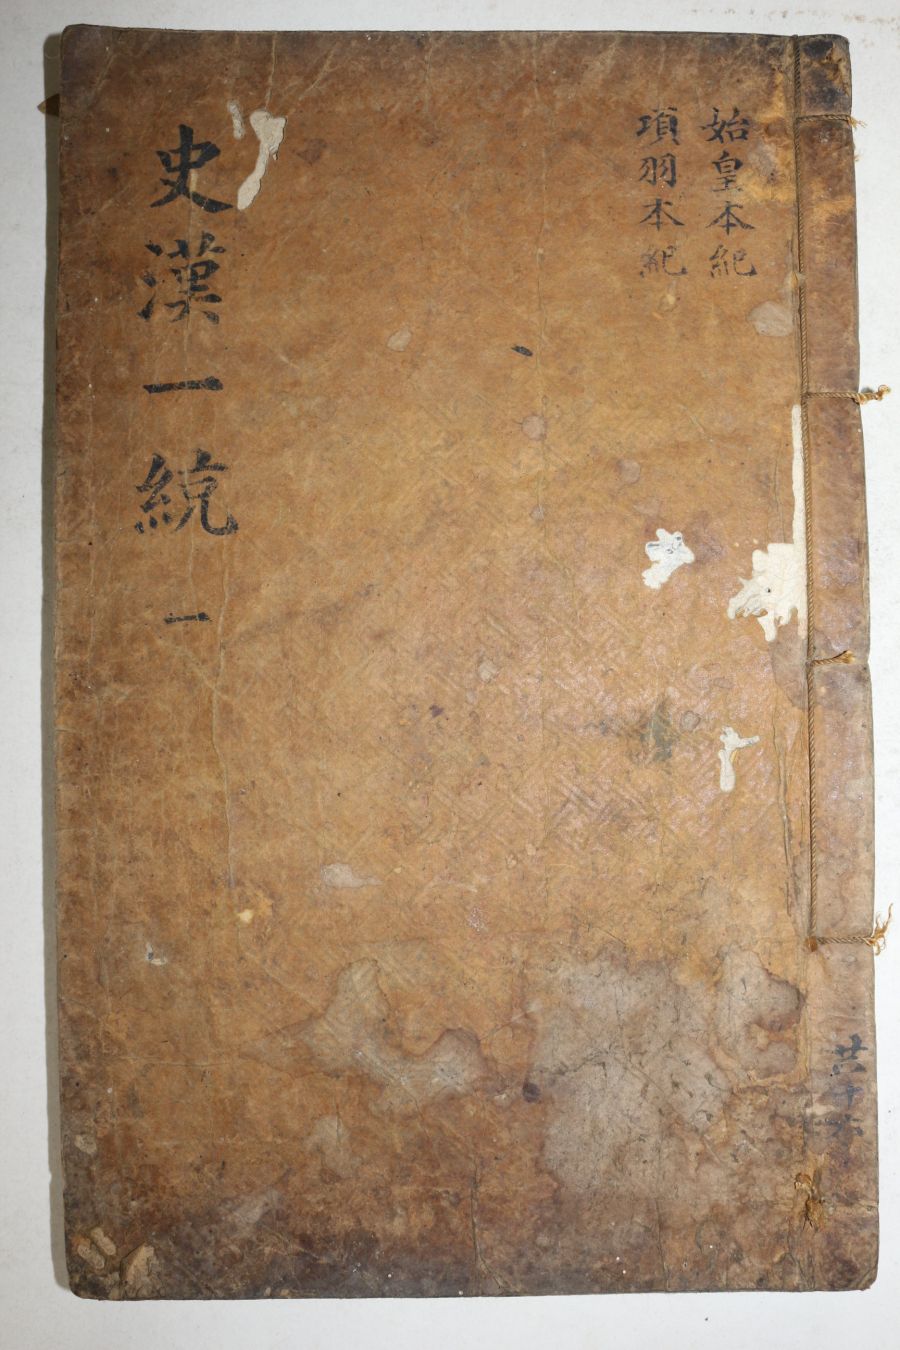 始皇本紀
項羽本紀
史漢一統
一
共十六